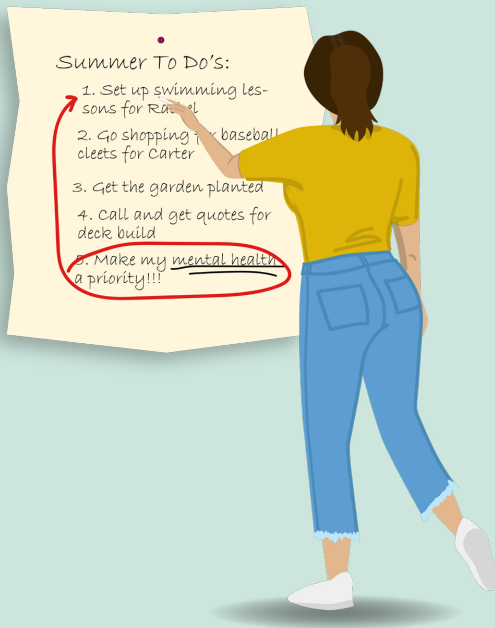 Summer To Do's:
1. Set up swimming les-
sons for
2. Go shopping baseball
cleets for Carter
3. Get the garden planted
4. Call and get quotes for
deck build
5. Make my mental health
a priority!!!